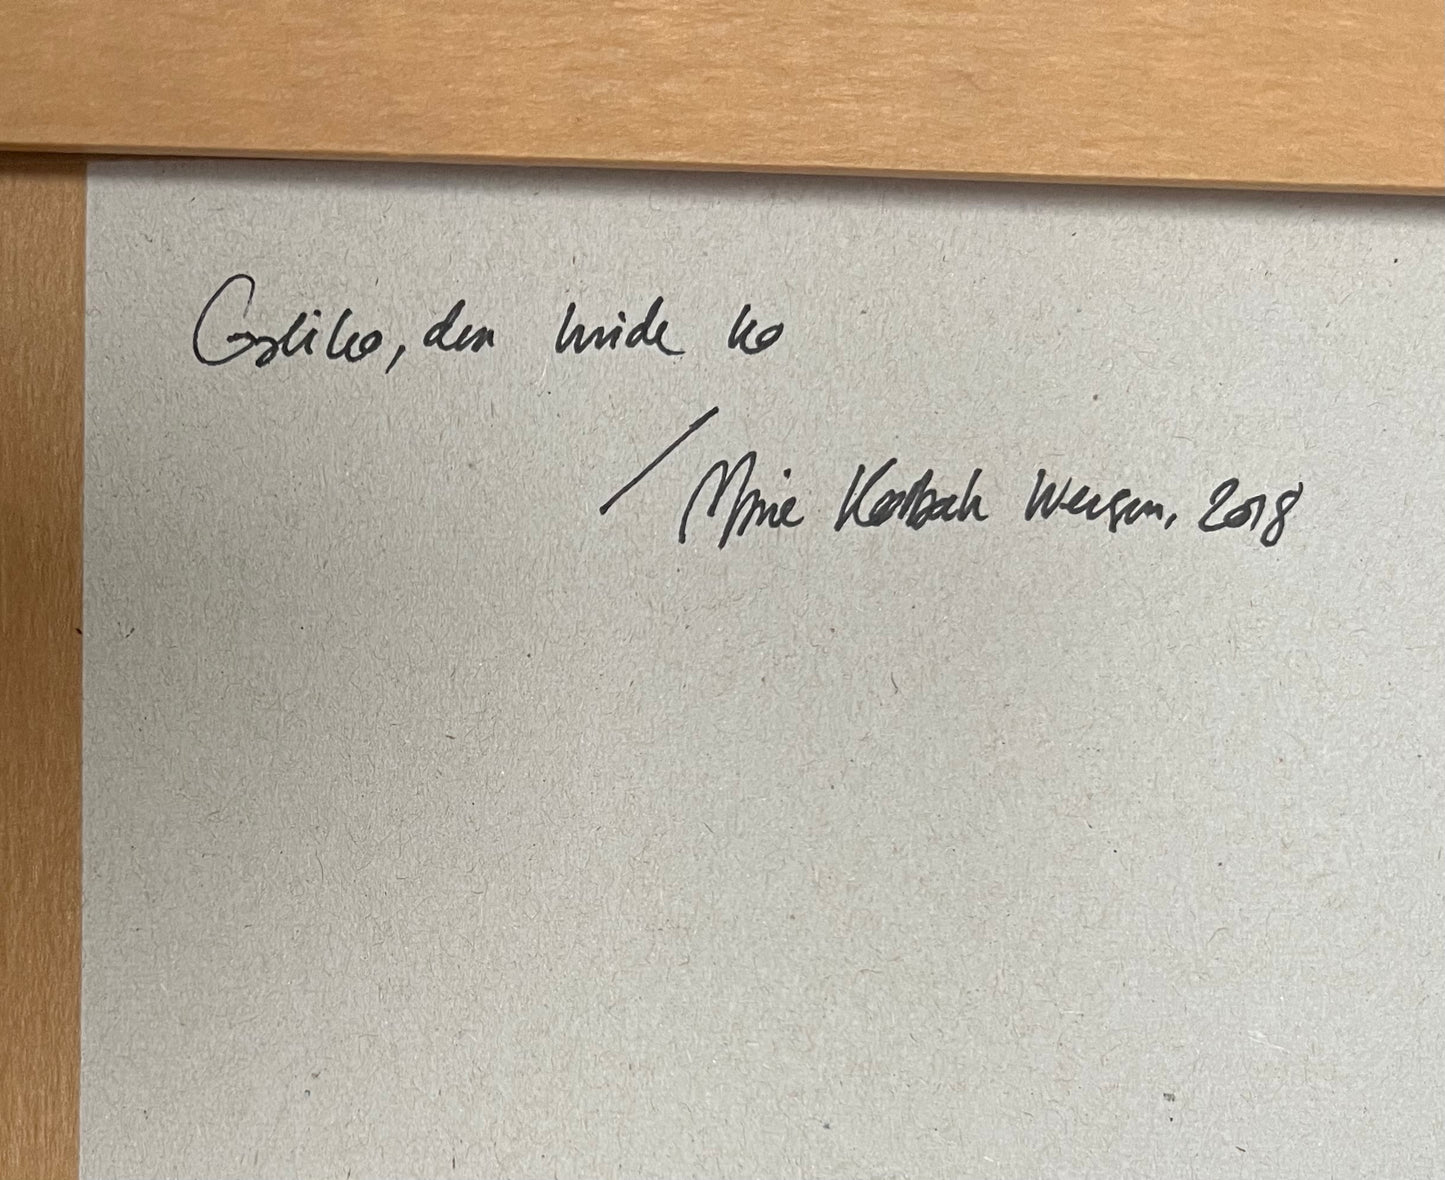 Goliko, den hvide ko
/ Mine Kolbak Wengen, 2018